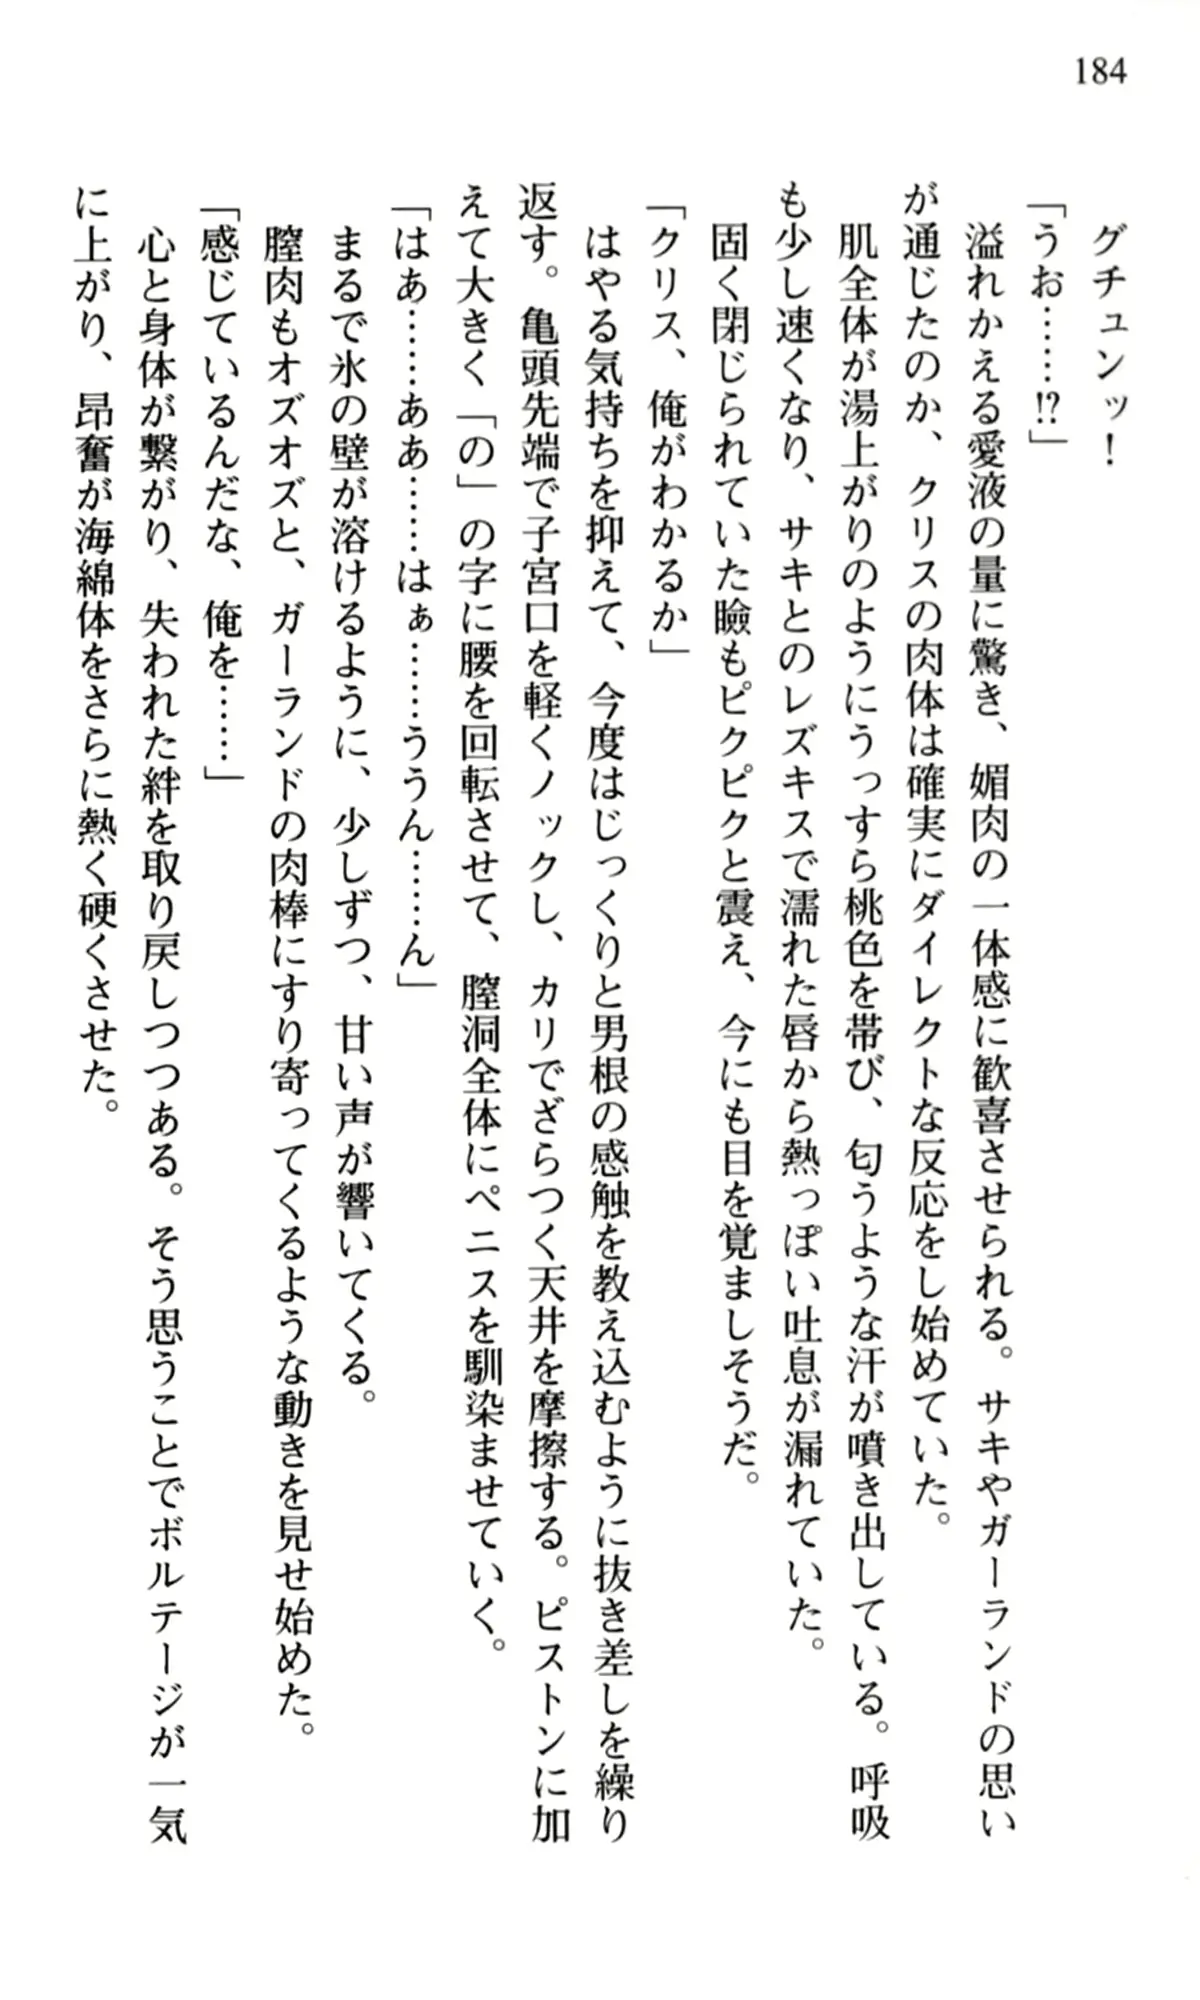 184
グチュンッ！
「うお……!?」
溢れかえる愛液の量に驚き、媚肉の一体感に歓喜させられる。サキやガーランドの思い
が通じたのか、クリスの肉体は確実にダイレクトな反応をし始めていた。
肌全体が湯上がりのようにうっすら桃色を帯び、匂うような汗が噴き出している。呼吸
も少し速くなり、サキとのレズキスで濡れた唇から熱っぽい吐息が漏れていた。
固く閉じられていた瞼もピクピクと震え、今にも目を覚ましそうだ。
「クリス、俺がわかるか」
はやる気持ちを抑えて、今度はじっくりと男根の感触を教え込むように抜き差しを繰り
返す。亀頭先端で子宮口を軽くノックし、カリでざらつく天井を摩擦する。ピストンに加
えて大きく「の」の字に腰を回転させて、膣洞全体にペニスを馴染ませていく。
「はあ……ああ……はぁ……ううん……ん」
まるで氷の壁が溶けるように、少しずつ、甘い声が響いてくる。
膣肉もオズオズと、ガーランドの肉棒にすり寄ってくるような動きを見せ始めた。
「感じているんだな、俺を……」
心と身体が繋がり、失われた絆を取り戻しつつある。そう思うことでボルテージが一気
に上がり、昂奮が海綿体をさらに熱く硬くさせた。